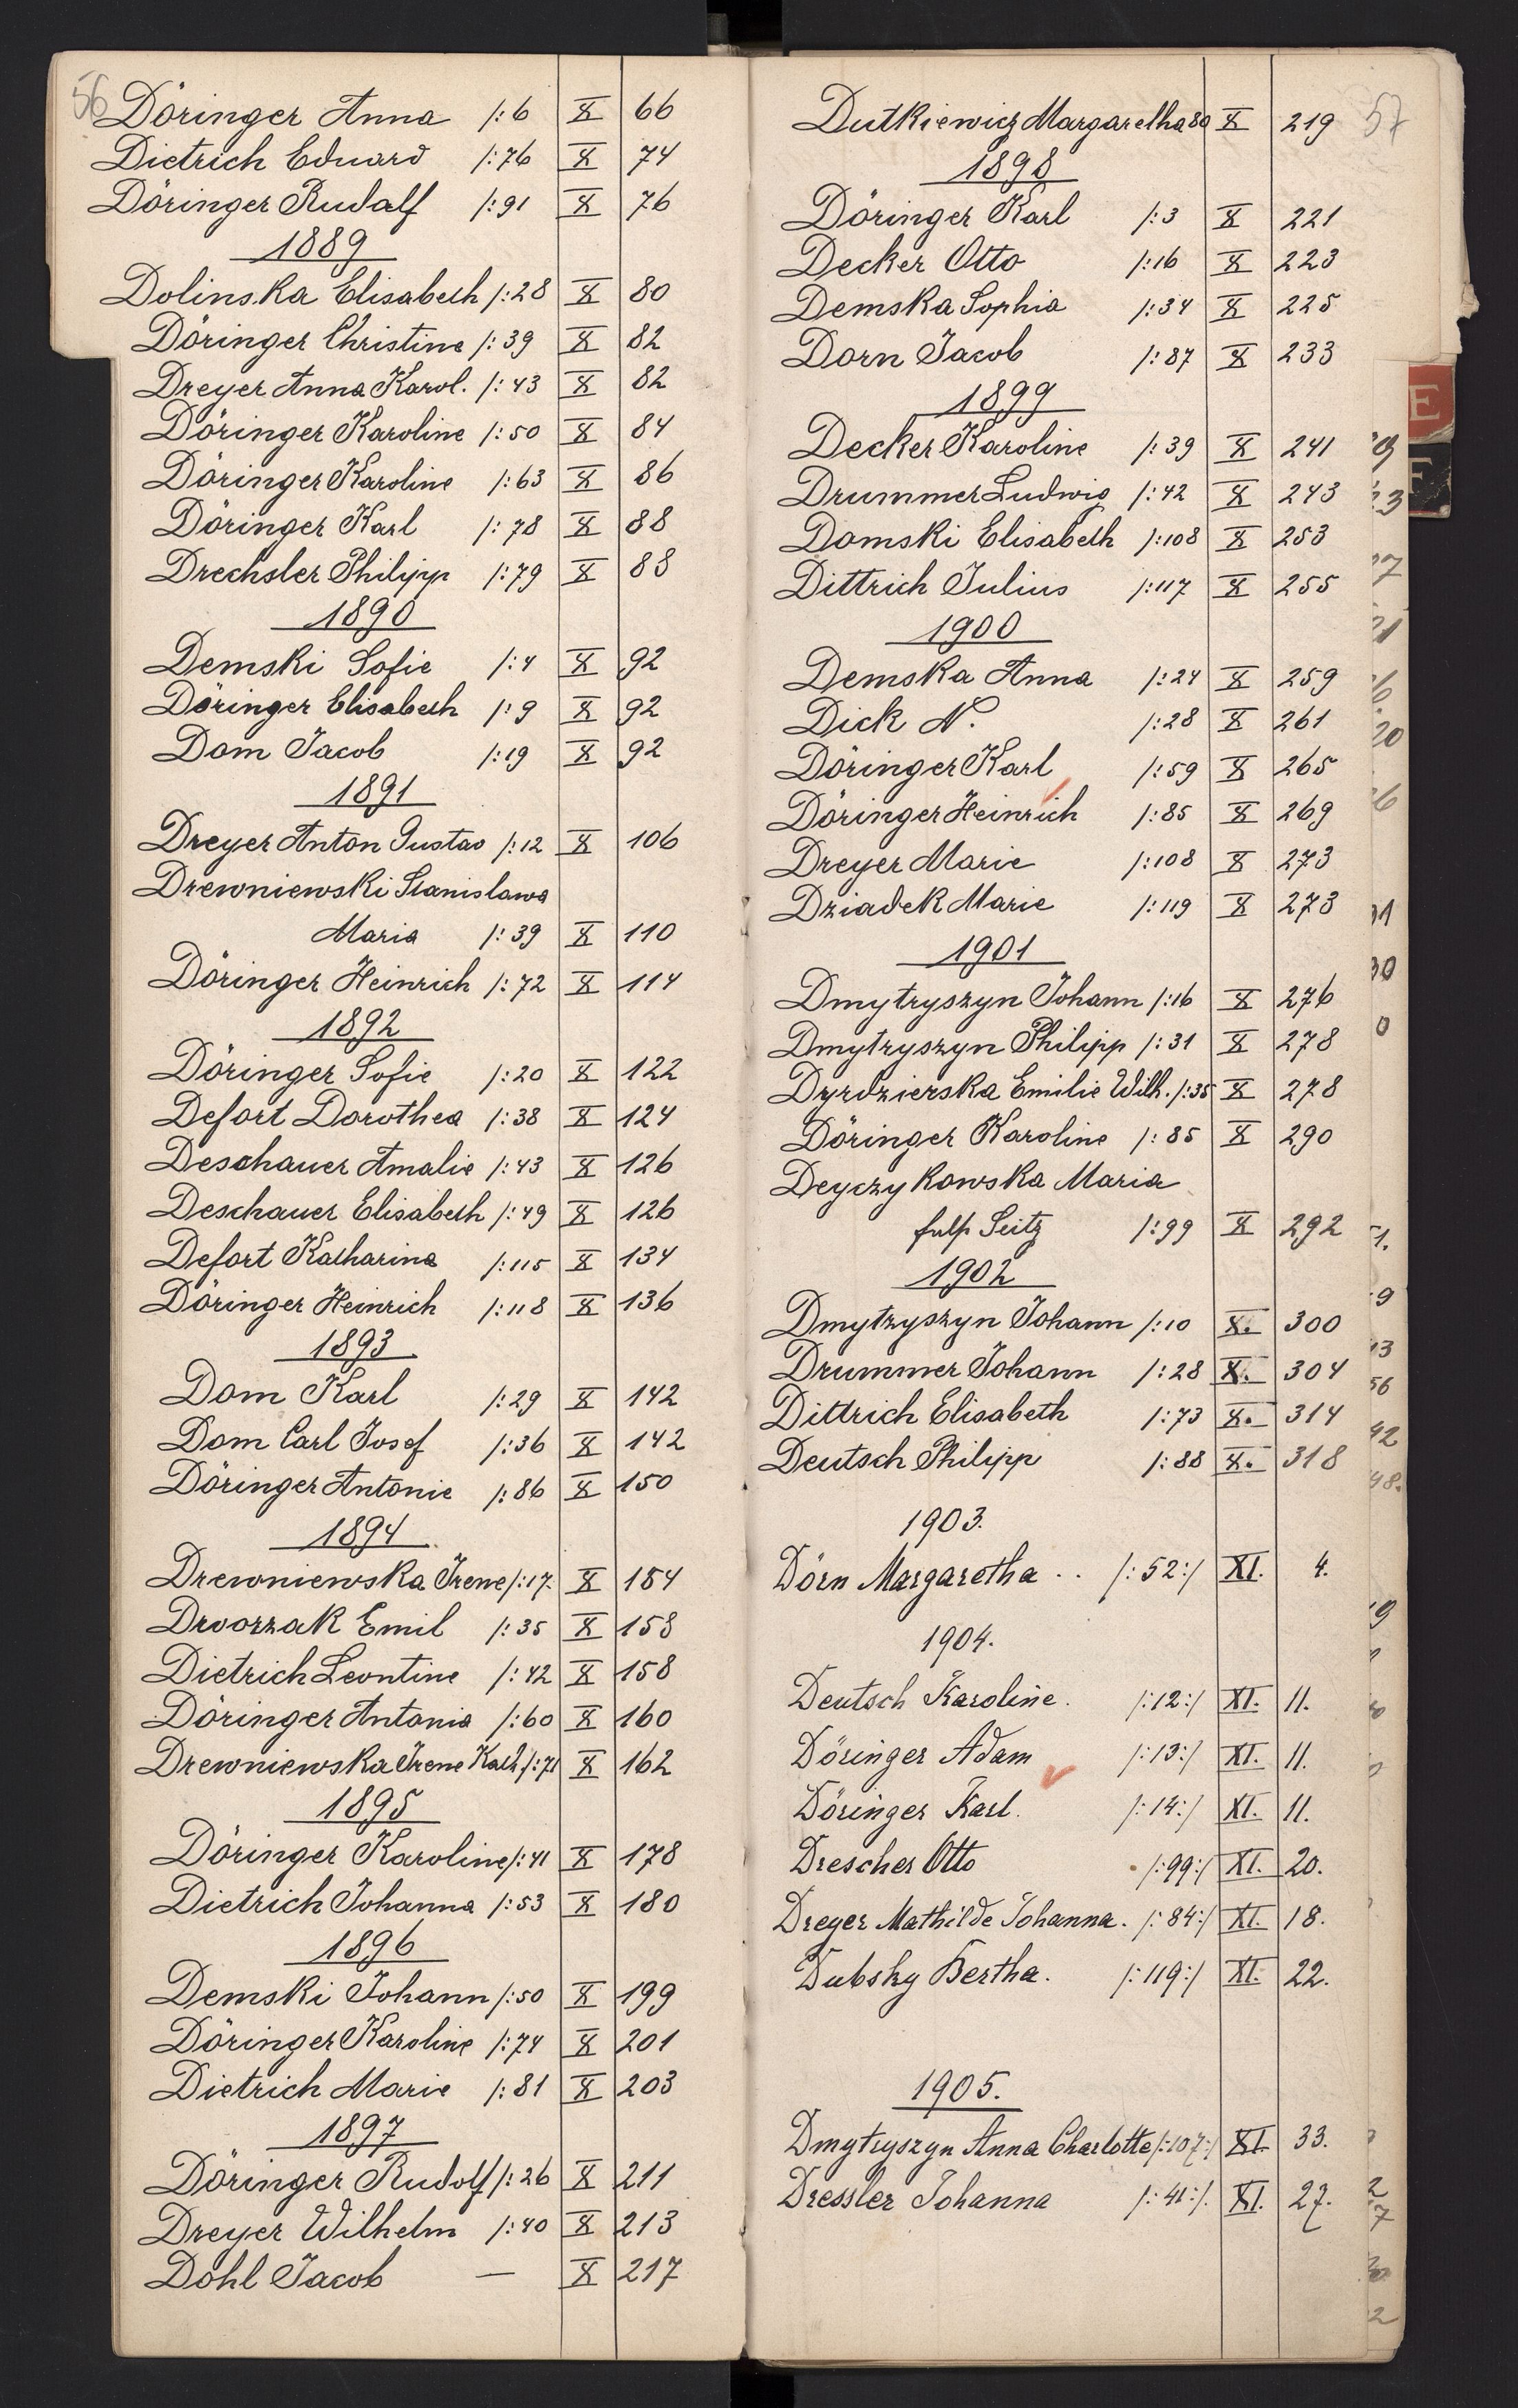 56
Döringer Anna /:6 X 66
Dietrich Eduard /:76 X 74
Döringer Rudalf /:91 X 76
1889
Dolinska Elisabeth /:28 X 80
Döringer Christine /:39 X 82
Dreyer Anna Karol. /:43 X 82
Döringer Karoline /:50 X 84
Döringer Karoline /:63 X 86
Döringer Karl /:78 X 88
Drechsler Philipp /:79 X 88
1890
Demski Sofie /:4 X 92
Döringer Elisabeth /:9 X 92
Dom Jacob /:19 X 92
1891
Dreyer Anton Gustav /:12 X 106
Drewniewski Stanislawa
Maria /:39 X 110
Döringer Heinrich /:72 X 114
1892
Döringer Sofie /:20 X 122
Defort Dorothea /:38 X 124
Deschauer Amalie /:43 X 126
Deschauer Elisabeth /:49 X 126
Defort Katharina /:115 X 134
Döringer Heinrich /:118 X 136
1893
Dom Karl /:29 X 142
Dom Carl Josef /:36 X 142
Döringer Antonie /:86 X 150
1894
Drewniewska Irene /:17. X 154
Drvorzak Emil /:35 X 158
Dietrich Leontine /:42 X 158
Döringer Antonia /:60 X 160
Drewniewska Irene Kath. /:71 X 162
1895
Döringer Karoline /:41 X 178
Dietrich Johanna /:53 X 180
1896
Demski Johann /:50 X 199
Döringer Karoline /:74 X 201
Dietrich Marie /:81 X 203
1897
Döringer Rudolf /:26 X 211
Dreyer Wilhelm /:40 X 213
Döhl Jacob — X 217
57
Dutkiewicz Margaretha 80 X 219
1898
Döringer Karl /:3 X 221
Decker Otto /:16 X 223
Demska Sophia /:34 X 225
Dorn Jacob /:87 X 233
1899
Decker Karoline /:39 X 241
Drummer Ludwig /:42 X 243
Domski Elisabeth /:108 X 253
Dittrich Julius /:117 X 255
1900
Demska Anna /:24 X 259
Dick N. /:28 X 261
Döringer Karl /:59 X 265
Döringer Heinrich /:85 X 269
Dreyer Marie /:108 X 273
Dziadek Marie /:119 X 273
1901
Dmytryszyn Johann /:16 X 276
Dmytryszyn Philipp /:31 X 278
Dyrdzierska Emilie Wilh. /:35 X 278
Döringer Karoline /:85 X 290
Deyczykowska Maria
Seitz /:99 X 292
1902
Dmytryszyn Johann /:10 X. 300
Drummer Johann /:28 X. 304
Dittrich Elisabeth /:73 X. 314
Deutsch Philipp /:88 X. 318
1903.
Dörn Margaretha .. /:52:/ XI. 4.
1904.
Deutsch Karoline. /:12:/ XI. 11.
Döringer Adam /:13:/ XI. 11.
Döringer Karl. /:14:/ XI. 11.
Drescher Otto /:99:/ XI. 20.
Dreyer Mathilde Johanna. /:84:/ XI. 18.
Dubsky Bertha. /:119:/ XI. 22.
1905.
Dmytryszyn Anna Charlotte /:107:/ XI. 33.
Dressler Johanna /:41:/. XI. 27.
E
F